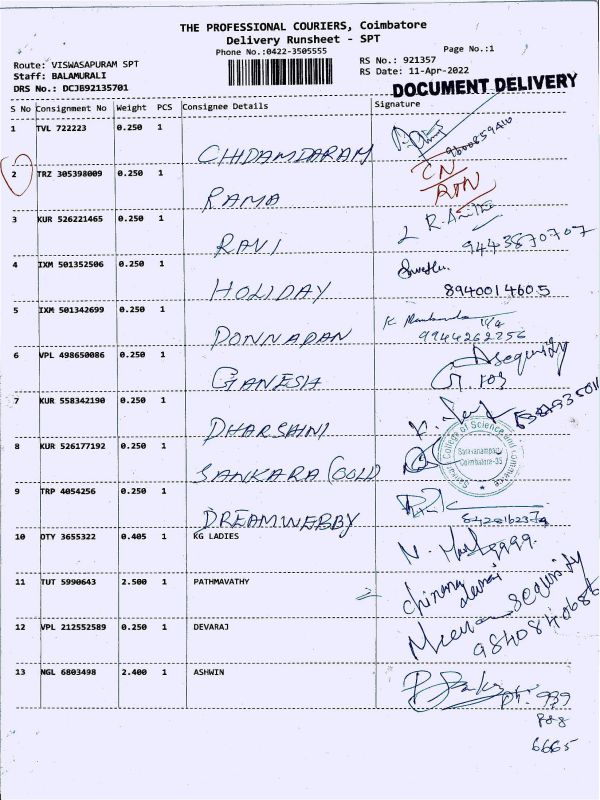 THE PROFESSIONAL COURIERS, Coimbatore
Delivery Runsheet - SPT
Phone No.:0422-3505555
Page No.:1
Route: VISWASAPURAM SPT
RS No.: 921357
Staff: BALAMURALI
RS Date: 11-Apr-2022
DRS No.: DCJB92135701
DOCUMENT DELIVERY
S No Consignment No Weight PCS Consignee Details Signature
1 TVL 722223 0.250 1
CHIDAMDARAM
2 TRZ 305398009 0.250 1 CN
RAMA
3 KUR 526221465 0.250 1
RAVI 9443870707
4 IXM 501352506 0.250 1
HOLIDAY 8940014605
5 IXM 501342699 0.250 1
PONNADAN 9944262256
6 VPL 498650086 0.250 1
GANESH
7 KUR 558342190 0.250 1
DHARSHINI
8 KUR 526177192 0.250 1
College of Science and Commerce
Saravanampatti
Coimbatore-35
SANKARA GOLD
9 TRP 4054256 0.250 1
DREAMWEBBY
10 DTY 3655322 0.405 1 KG LADIES
11 TUT 5990643 2.500 1 PATHMAVATHY
12 VPL 212552589 0.250 1 DEVARAJ
9840840686
13 NGL 6803498 2.400 1 ASHWIN
6665